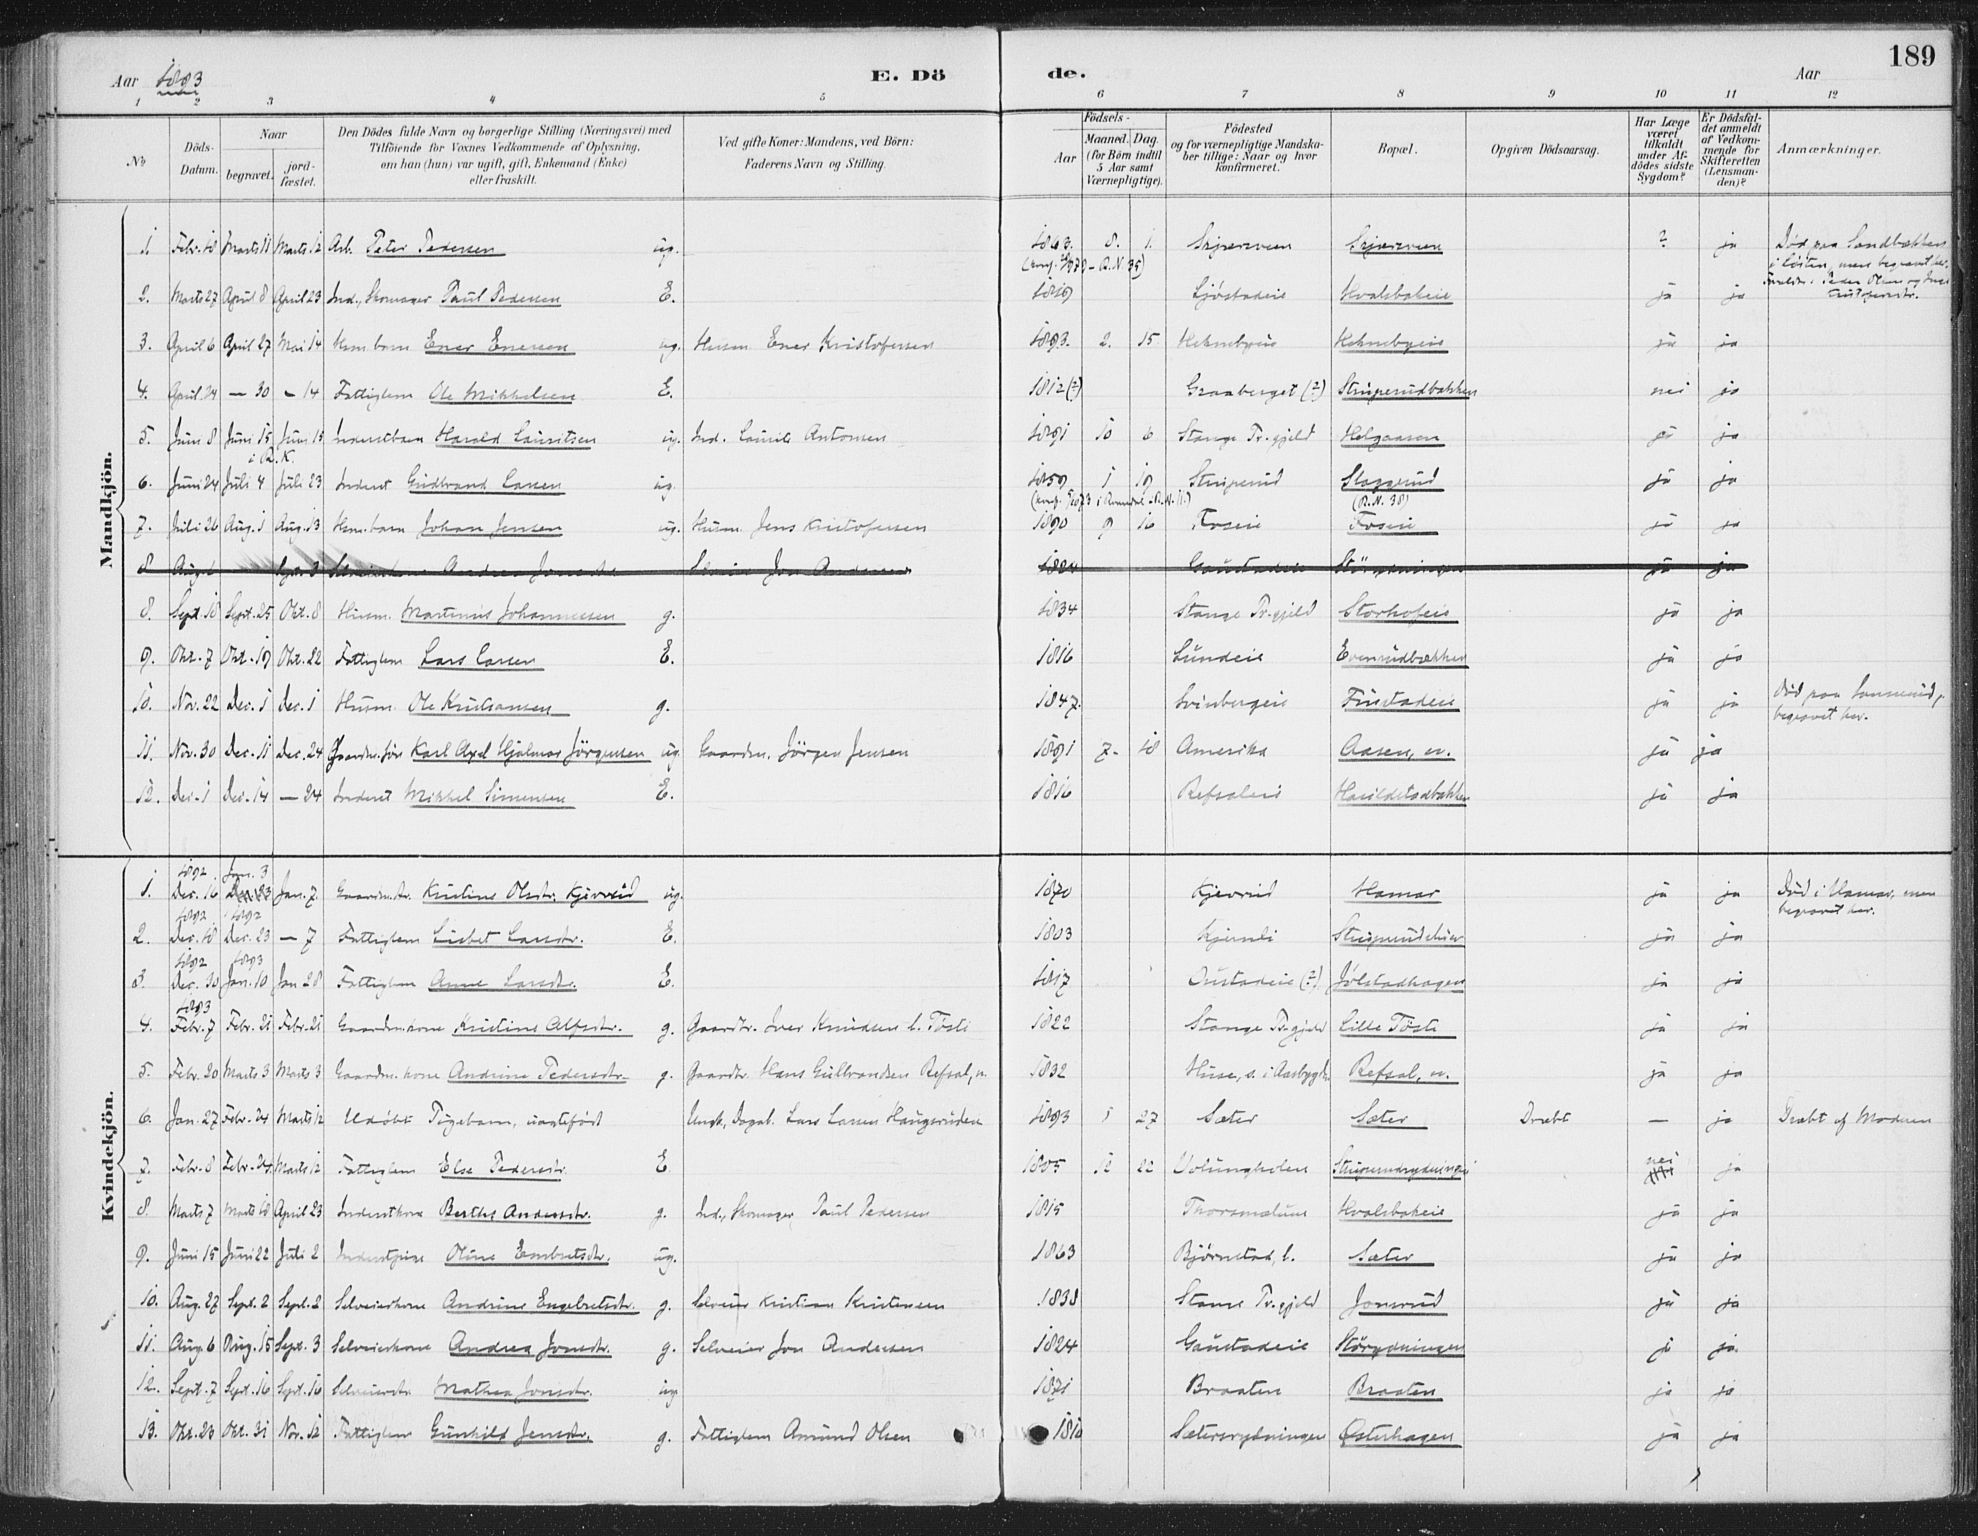 189
Aar 1893 E. Dö de. Aar
1 2 3 4 5 6 7 8 9 10 11 12
No
Döds-Datum.
Naar begravet. jord-fæstet.
Den Dödes fulde Navn og borgerlige Stilling (Næringsvei) med
Tilföiende for Voxnes Vedkommende af Oplysning,
om han (hun) var ugift, gift, Enkemand (Enke)
eller fraskilt.
Ved gifte Koner: Mandens, ved Börn:
Faderens Navn og Stilling.
Födsels-
Aar Maaned. Dag.
(for Börn indtil
5 Aar samt
Værnepligtige).
Födested
og for værnepligtige Mandska-
ber tillige: Naar og hvor
konfirmeret.
Bopæl.
Opgiven Dödsaarsag.
Har Læge
været
tilkaldt
under Af-
dödes sidste
Sygdom?
Er Dödsfal-
det anmeldt
af Vedkom-
mende for
Skifteretten
(Lensman-
den)?
Anmærkninger.
Mandkjön.
1. Febr. 18 Marts 11 Marts 12 Arb. Peter Pedersen ug. 1863. 8. 1. Skjærveen Skjærveen ? ja Død paa Sandbakken
i Løiten, men begravet her.
2. Marts 27 April 8 April 23 Ind., Skomager Paul Pedersen E. 1819 Ljøstadeie Hvalsbakeie ja ja
3. April 6 April 27 Mai 14 Husm. barn Ener Enersen ug. Husm Ener Kristofersen 1893. 2. 15 Heknebyeie Heknebyeie ja ja
4. April 24 — 30 — 14 Fattiglem Ole Mikkelsen E. 1812 (?) Graaberget (?) Striperudbakken nei ja
5. Juni 8 Juni 15 Juni 15 Inderstbarn Harald Lauritsen ug. Ind. Laurits Antonsen 1891 10 6 Stange Pr.gjeld Helgaasen ja ja
i R. K.
6. Juni 24 Juli 4 Juli 23 Inderst Gudbrand Larsen ug. 1859 1 19 Striperud Slaggerud ja ja
7. Juli 26 Aug. 1 Aug. 13 Husm. barn Johan Jensen ug. Husm. Jens Kristofersen 1890 9 16 Foseie Foseie ja ja
8 Aug. 6 Sept. 3 Selveierkone Andrea Jonsdtr. Selveier Jon Andersen 1824 Gaustadeie Störydningen ja ja
8. Sept. 18 Sept. 25 Okt. 8 Husm. Martinus Johannessen g. 1834 Stange Pr.gjeld Storhofeie ja ja
9. Okt. 7 Okt. 19 Okt. 22 Fattiglem Lars Larsen E. 1816 Lundeie Evenrudbakken ja ja
10. Nov. 22 Dec. 1 Dec. 1 Husm. Ole Kristiansen g. 1847. Svinbergeie Finstadeie ja ja død paa
begravet her.
11. Nov. 30 Dec. 11 Dec. 24 Gaardm. søn Karl Axel Hjalmar Jörgensen ug. Gaardm. Jörgen Jensen 1891 7. 18 Amerika Aasen, n. ja ja
12. Dec. 1 Dec. 14 — 24 Inderst Mikkel Simensen E. 1816 Refsaleie Harildstadbakken ja ja
Kvindekjön.
1. 1892 Dec. 16 Jan. 3 Jan. 7 Gaardm.dtr. Kristine Olsdtr. Kjerrud ug. 1870 Kjerrud Hamar ja ja Død i Hamar, men
begravet her.
2. 1892 Dec. 18 1892 Dec. 23 — 7 Fattiglem Lisbet Larsdtr. E. 1803 Kjernli ja ja
3. 1892 Dec. 30 1893 Jan. 10 Jan 28 Fattiglem Anne Larsdtr. E. 1817 Oustadeie (?) Jølstadhagen ja ja
4. 1893 Febr. 7 Febr. 21 Febr. 21 Gaardm.kone Kristine Alfsdtr. g. Gaardbr. Iver Knudsen l. Tösti 1822 Stange Pr.gjeld Lille Tösti ja ja
5. Febr. 20 Marts 3 Marts 3 Gaardm. kone Andrine Pedersdtr. g. Gaardbr. Hans Gulbrandsen Refsal, n. 1832 Huse, s. i Aasbygden Refsal, n. ja ja
6. Jan. 27 Febr. 24 Marts 12 Udøbt Pigebarn, uægteført Ungk., Dagab. Lars Larsen Haugsruden 1893 1 27 Sæter Sæter Dræbt — ja Dræbt af Moderen
7. Febr. 8 Febr. 24 Marts 12 Fattiglem Else Pedersdtr. E 1805 12 22 Ulungholen Striperudrydningen nei ja
8. Marts 7 Marts 18 April 23 Inderstkone Berthe Andersdtr. g. Ind., Skomager Paul Pedersen 1815 Thorsmælum Hvalsbakeie ja ja
9. Juni 15 Juni 22 Juli 2 Inderstpige Oline Embretsdtr. ug. 1863 Bjørnstad, l. Sæter ja ja
10. Aug. 27 Sept. 2 Sept. 2 Selveierkone Andrine Engebretsdtr. g. Selveier Kristian Kristensen 1838 Stange Pr.gjeld Jonsrud ja ja
11. Aug. 6 Aug. 15 Sept. 3 Selveierkone Andrea Jonsdtr. g. Selveier Jon Andersen 1824 Gaustadeie Störydningen ja ja
12. Sept. 7 Sept. 16 Sept. 16 Selveierdtr. Mathea Jonsdtr. ug. 1871 Braaten Braaten ja ja
13. Okt. 23 Okt. 31 Nov. 12 Fattiglem Gunhild Jensdtr. g. Fattiglem Amund Olsen 1810 Sætersrydningen Østerhagen ja ja